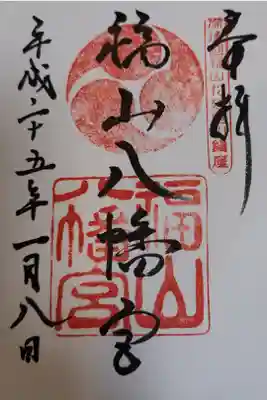 奉拝
福山八幡宮
平成二十五年一月八日
福山
八幡宮